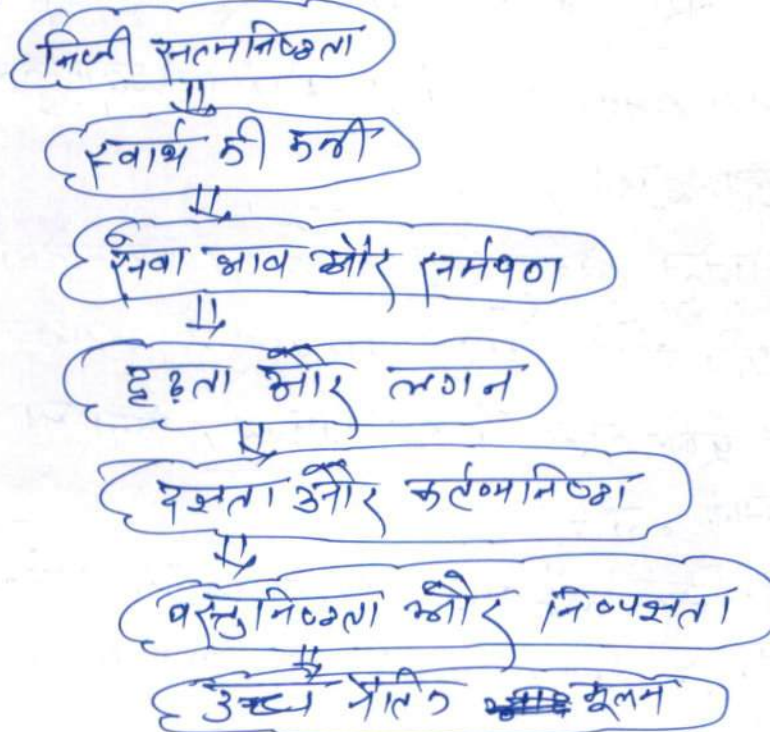 निजी सत्यनिष्ठता
स्वार्थ की कमी
सेवा भाव और समर्पण
दृढ़ता और लगन
दक्षता और कर्तव्यनिष्ठा
वस्तुनिष्ठता और निष्पक्षता
उच्च नैतिक मूल्य